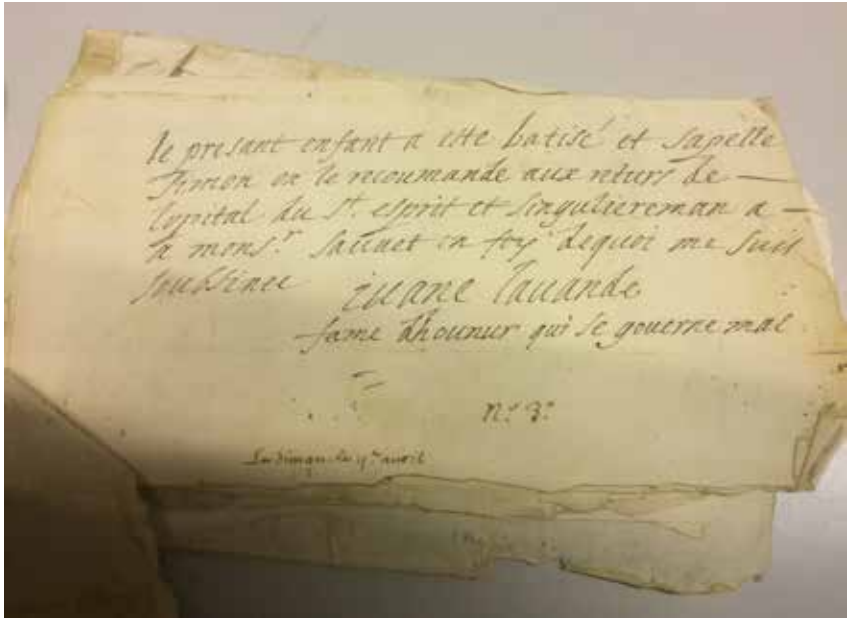 le presant enfant a este batisé et sapelle
symon on le recoumande aux rturs de —
lopital du St. esprit et singuliereman a —
a monsr. sauvet en foy dequoi me suis
soussinee
ivane lavande
fame dhounur qui se gouverne mal
No. 3o
Le dimanche avril